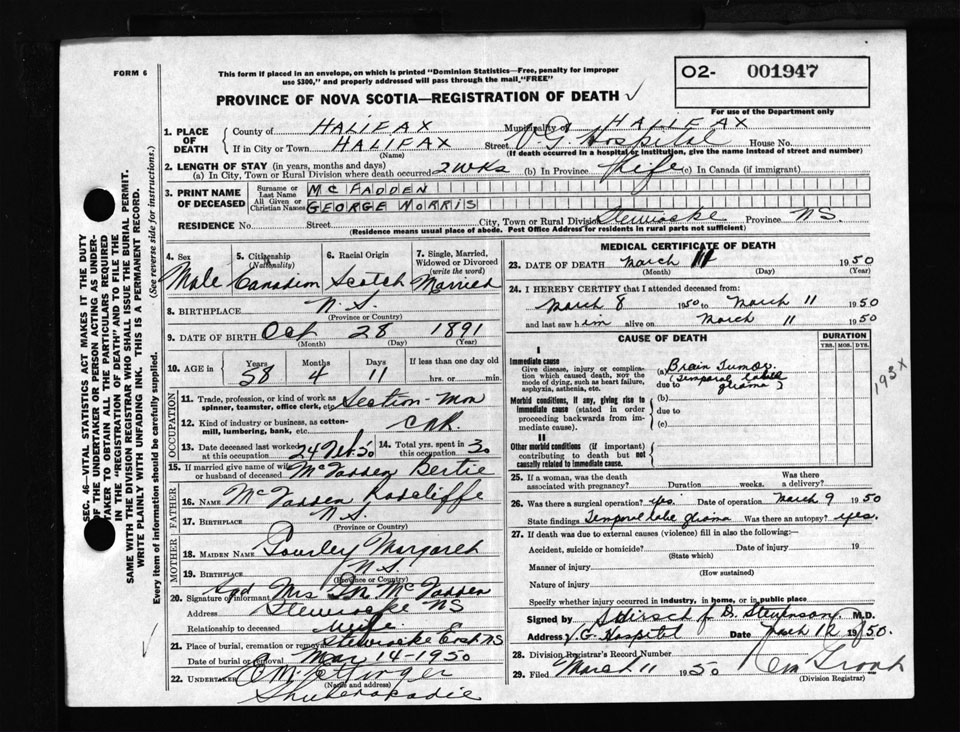 FORM 6
This form if placed in an envelope, on which is printed "Dominion Statistics—Free, penalty for improper
use $300," and properly addressed will pass through the mail, "FREE"
O2- 001947
For use of the Department only
PROVINCE OF NOVA SCOTIA—REGISTRATION OF DEATH ✓
1. PLACE OF DEATH { County of HALIFAX Municipality of HALIFAX
If in City or Town HALIFAX Street V G. Hospital House No.
(Name) (If death occurred in a hospital or institution, give the name instead of street and number)
2. LENGTH OF STAY (in years, months and days)
(a) In City, Town or Rural Division where death occurred 2 wks (b) In Province Life (c) In Canada (if immigrant)
3. PRINT NAME OF DECEASED { Surname or Last Name MCFADDEN
All Given or Christian Names GEORGE NORRIS
RESIDENCE No. Street City, Town or Rural Division Stewiacke Province NS
(Residence means usual place of abode. Post Office Address for residents in rural parts not sufficient)
4. Sex Male
5. Citizenship (Nationality) Canadian
6. Racial Origin Scotch
7. Single, Married, Widowed or Divorced (write the word) Married
8. BIRTHPLACE N.S.
(Province or Country)
9. DATE OF BIRTH Oct 28 1891
(Month) (Day) (Year)
10. AGE in { Years 58 Months 4 Days 11 If less than one day old hrs. or min.
OCCUPATION
11. Trade, profession, or kind of work as spinner, teamster, office clerk, etc. Section-Man
12. Kind of industry or business, as cotton-mill, lumbering, bank, etc. CNR.
13. Date deceased last worked at this occupation 24 Feb. 50 14. Total yrs. spent in this occupation 30
15. If married give name of wife or husband of deceased McFadden Bertie
FATHER
16. NAME McFadden Radcliffe
17. BIRTHPLACE N.S.
(Province or Country)
MOTHER
18. MAIDEN NAME Gourley Margaret
19. BIRTHPLACE N.S.
(Province or Country)
20. Signature of informant Sgd Mrs McFadden
Address Stewiacke NS
Relationship to deceased Wife.
21. Place of burial, cremation or removal Stewiacke East, NS
Date of burial or removal Mar 14-1950
22. UNDERTAKER C M Ettinger
(Name and address)
Shubenacadie
MEDICAL CERTIFICATE OF DEATH
23. DATE OF DEATH March 11 1950
(Month) (Day) (Year)
24. I HEREBY CERTIFY that I attended deceased from:
March 8 1950 to March 11 1950
and last saw him alive on March 11 1950
CAUSE OF DEATH
DURATION
YRS. MOS. DYS.
I
Immediate cause
Give disease, injury or complication which caused death, not the mode of dying, such as heart failure, asphyxia, asthenia, etc.
(a) Brain Tumor
(Temporal lobe
due to glioma)
193X
Morbid conditions, if any, giving rise to immediate cause (stated in order of proceeding backwards from immediate cause).
(b)
due to
(c)
II
Other morbid conditions (if important) contributing to death but not causally related to immediate cause.
25. If a woman, was the death associated with pregnancy? Duration weeks. Was there a delivery?
26. Was there a surgical operation? yes. Date of operation March 9 1950
State findings Temporal lobe glioma Was there an autopsy? yes.
27. If death was due to external causes (violence) fill in also the following:—
Accident, suicide or homicide? Date of injury 19
(State which)
Manner of injury
(How sustained)
Nature of injury
Specify whether injury occurred in industry, in home, or in public place
Signed by S Hirsch f D. Stevenson, M.D.
Address V.G. Hospital Date March 12 1950.
28. Division Registrar's Record Number
29. Filed March 11 1950
(Division Registrar)
SEC. 46—VITAL STATISTICS ACT MAKES IT THE DUTY
OF THE UNDERTAKER OR PERSON ACTING AS UNDER-
TAKER TO OBTAIN ALL THE PARTICULARS REQUIRED
IN THE "REGISTRATION OF DEATH" AND TO FILE THE
SAME WITH THE DIVISION REGISTRAR WHO SHALL ISSUE THE BURIAL PERMIT.
WRITE PLAINLY WITH UNFADING INK. THIS IS A PERMANENT RECORD.
Every item of information should be carefully supplied. (See reverse side for instructions.)